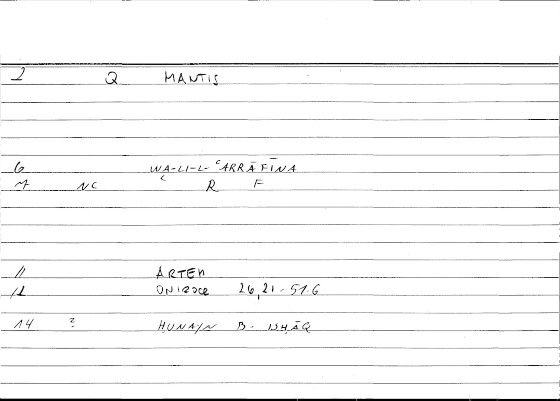 2 Q MANTIS
6 WA-LI-L-ʿARRĀFĪNA
7 NC ʿ R F
11 ARTEM
12 ONIROCR 26,21 - 51.6
14 ? ḤUNAYN B. ISḤĀQ